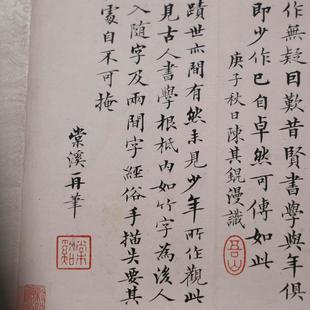 作無疑因歎昔賢書學與年俱
即少作已自卓然可傳如此
庚子秋日陳其錕漫識
蹟世亦間有然未見少年所作觀此
見古人書學根柢內如竹字為後人
入隨字及兩閒字經俗手描失要其
處自不可掩
棠溪再筆